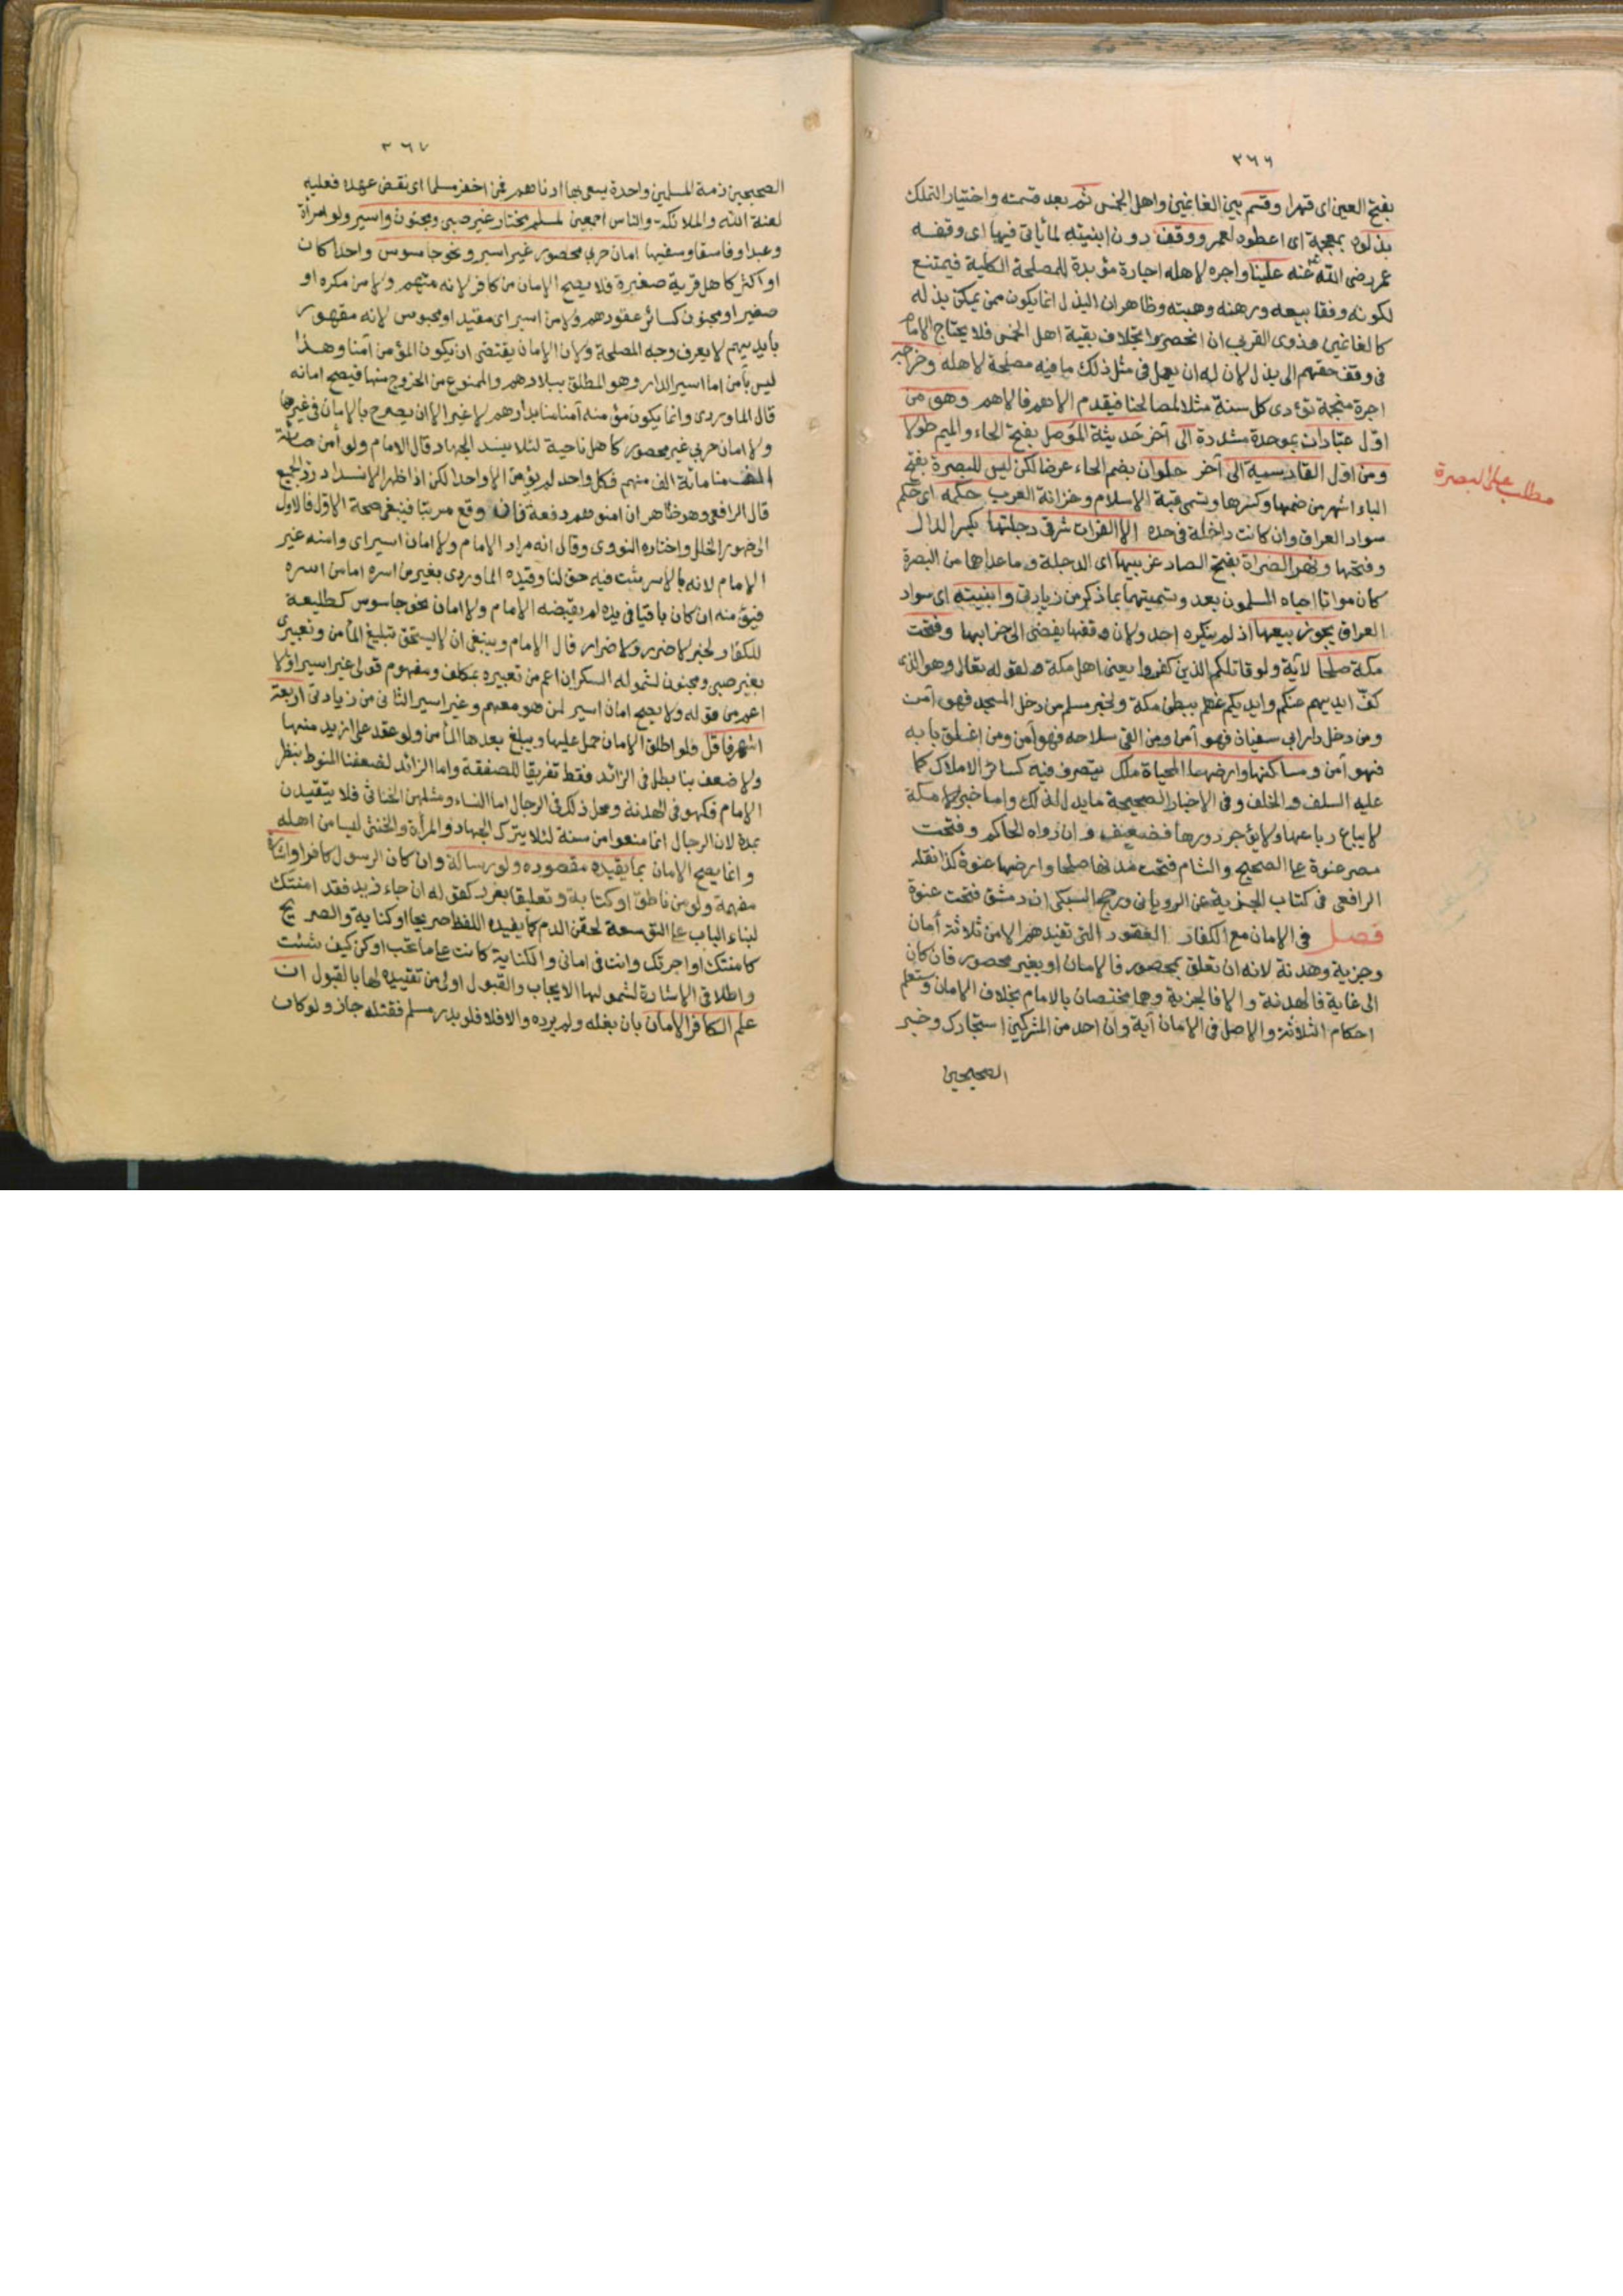 ٣٦٦
بفتح العين اى قهرا وقسم بين الغانمين واهل الخمس ثم بعد قسمته واختيار التملك
بذلوه بمعجمة اى اعطوه لعمر ووقف دون ابنيته لما يأتى فيها اى وقفه
عمر رضى الله عنه علينا واجره لاهله اجارة مؤبدة للمصلحة الكلية فيمتنع
لكونه وقفا بيعه ورهنه وهبته وظاهر ان البذل انما يكون ممن يمكن بذله
كالغانمين وذوى القربى ان انحصروا بخلاف بقية اهل الخمس فلا يحتاج الامام
فى وقف حقهم الى بذل لان له ان يعمل فى مثل ذلك ما فيه مصلحة لاهله وخراجه
اجرة منجمة تؤدى كل سنة مثلا لمصالحنا فيقدم الاهم فالاهم وهو من
اول عبادان بموحدة مشددة الى آخر حديثة الموصل بفتح الحاء والميم طولا
ومن اول القادسية الى آخر حلوان بضم الحاء عرضا لكن ليس للبصرة بفتح
الباء اشهر من ضمها وكسرها وتسمى قبة الاسلام وخزانة العرب حكمه اى حكم
سواد العراق وان كانت داخلة فى حده الا الفرات شرقى دجلتها بكسر الدال
وفتحها ونهر الصراة بفتح الصاد غربيها اى الدجلة وما عداها من البصرة
كان مواتا احياه المسلمون بعد وتسميتهما بما ذكر من زيادتى وابنيته اى سواد
العراق يجوز بيعها اذ لم ينكره احد ولان وقفها يفضى الى خرابها وفتحت
مكة صلحا لآية ولو قاتلكم الذين كفروا يعنى اهل مكة ولقوله تعالى وهو الذى
كف ايديهم عنكم وايديكم عنهم ببطن مكة ولخبر مسلم من دخل المسجد فهو آمن
ومن دخل دار ابى سفيان فهو آمن ومن القى سلاحه فهو آمن ومن اغلق بابه
فهو آمن ومساكنها وارضها المحياة ملك يتصرف فيه كسائر الاملاك كما
عليه السلف والخلف وفى الاخبار الصحيحة ما يدل لذلك واما خبر مكة
لا يباع رباعها ولا يؤجر دورها فضعيف وان رواه الحاكم وفتحت
مصر عنوة على الصحيح والشام فتحت مدنها صلحا وارضها عنوة كذا نقله
الرافعى فى كتاب الجزية عن الرويانى ورجح السبكى ان دمشق فتحت عنوة
فصل فى الامان مع الكفار العقود التى تفيدهم الامن ثلاثة أمان
وجزية وهدنة لانه ان تعلق بمحصور فالامان او بغير محصور فان كان
الى غاية فالهدنة والا فالجزية وهما مختصان بالامام بخلاف الامان وستعلم
احكام الثلاثة والاصل فى الامان آية وان احد من المشركين استجارك وخبر
الصحيحين
مطلب على البصرة
٣٦٧
الصحيحين ذمة المسلمين واحدة يسعى بها ادناهم فمن اخفر مسلما اى نقض عهده فعليه
لعنة الله والملائكة والناس اجمعين لمسلم مختار غير صبى ومجنون واسير ولو امرأة
وعبدا وفاسقا وسفيها امان حربى محصور غير اسير ونحو جاسوس واحدا كان
او اكثر كاهل قرية صغيرة فلا يصح الامان من كافر لانه متهم ولا من مكره او
صغير او مجنون كسائر عقودهم ولا من اسير اى مقيد او محبوس لانه مقهور
بايديهم لا يعرف وجه المصلحة ولان الامان يقتضى ان يكون المؤمن آمنا وهذا
ليس بآمن اما اسير الدار وهو المطلق ببلادهم والممنوع من الخروج منها فيصح امانه
قال الماوردى وانما يكون مؤمنه آمنا منا بدارهم لا غير الا ان يصرح بالامان فى غيرها
ولا امان حربى غير محصور كاهل ناحية لئلا ينسد الجهاد قال الامام ولو أمن مائة
الف منا مائة الف منهم فكل واحد لم يؤمن الا واحدا لكن اذا ظهر الانسداد رد الجميع
قال الرافعى وهو ظاهر ان امنوهم دفعة فان وقع مرتبا فينبغى صحة الاول فالاول
الى ظهور الخلل واختاره النووى وقال انه مراد الامام ولا امان اسير اى وامنه غير
الامام لانه بالاسر ثبت فيه حق لنا وقيده الماوردى بغير من اسره اما من اسره
فيؤمنه ان كان باقيا فى يده لم يقبضه الامام ولا امان نحو جاسوس كطليعة
للكفار لخبر لا ضرر ولا ضرار قال الامام وينبغى ان لا يستحق تبليغ المأمن وتعبيرى
بغير صبى ومجنون لشموله السكران اعم من تعبيره بمكلف ومفهوم قولى غير اسير اولا
اعم من قوله ولا يصح امان اسير لمن هو معهم وغير اسير الثانى من زيادتى اربعة
اشهر فاقل فلو اطلق الامان حمل عليها ويبلغ بعدها المأمن ولو عقد على ازيد منها
ولا ضعف بنا بطل فى الزائد فقط تفريقا للصفقة واما الزائد لضعفنا المنوط بنظر
الامام فكهو فى الهدنة ومحل ذلك فى الرجال اما النساء ومثلهن الخناثى فلا يتقيدن
بمدة لان الرجال انما منعوا من سنة لئلا يترك الجهاد والمرأة والخنثى ليسا من اهله
وانما يصح الامان بما يفيده مقصوده ولو رسالة وان كان الرسول كافرا واشارة
مفهمة ولو من ناطق او كتابة وتعليقا بغرر كقوله ان جاء زيد فقد امنتك
لبناء الباب على التوسعة لحقن الدم كما يفيده اللفظ صريحا او كناية والصريح
كامنتك او اجرتك وانت فى امانى والكناية كانت على ما تحب او كن كيف شئت
واطلاقى الاشارة لشمولها الايجاب والقبول اولى من تقييده لها بالقبول ان
علم الكافر الامان بان بلغه ولم يرده والا فلا فلو بدر مسلم فقتله جاز ولو كان